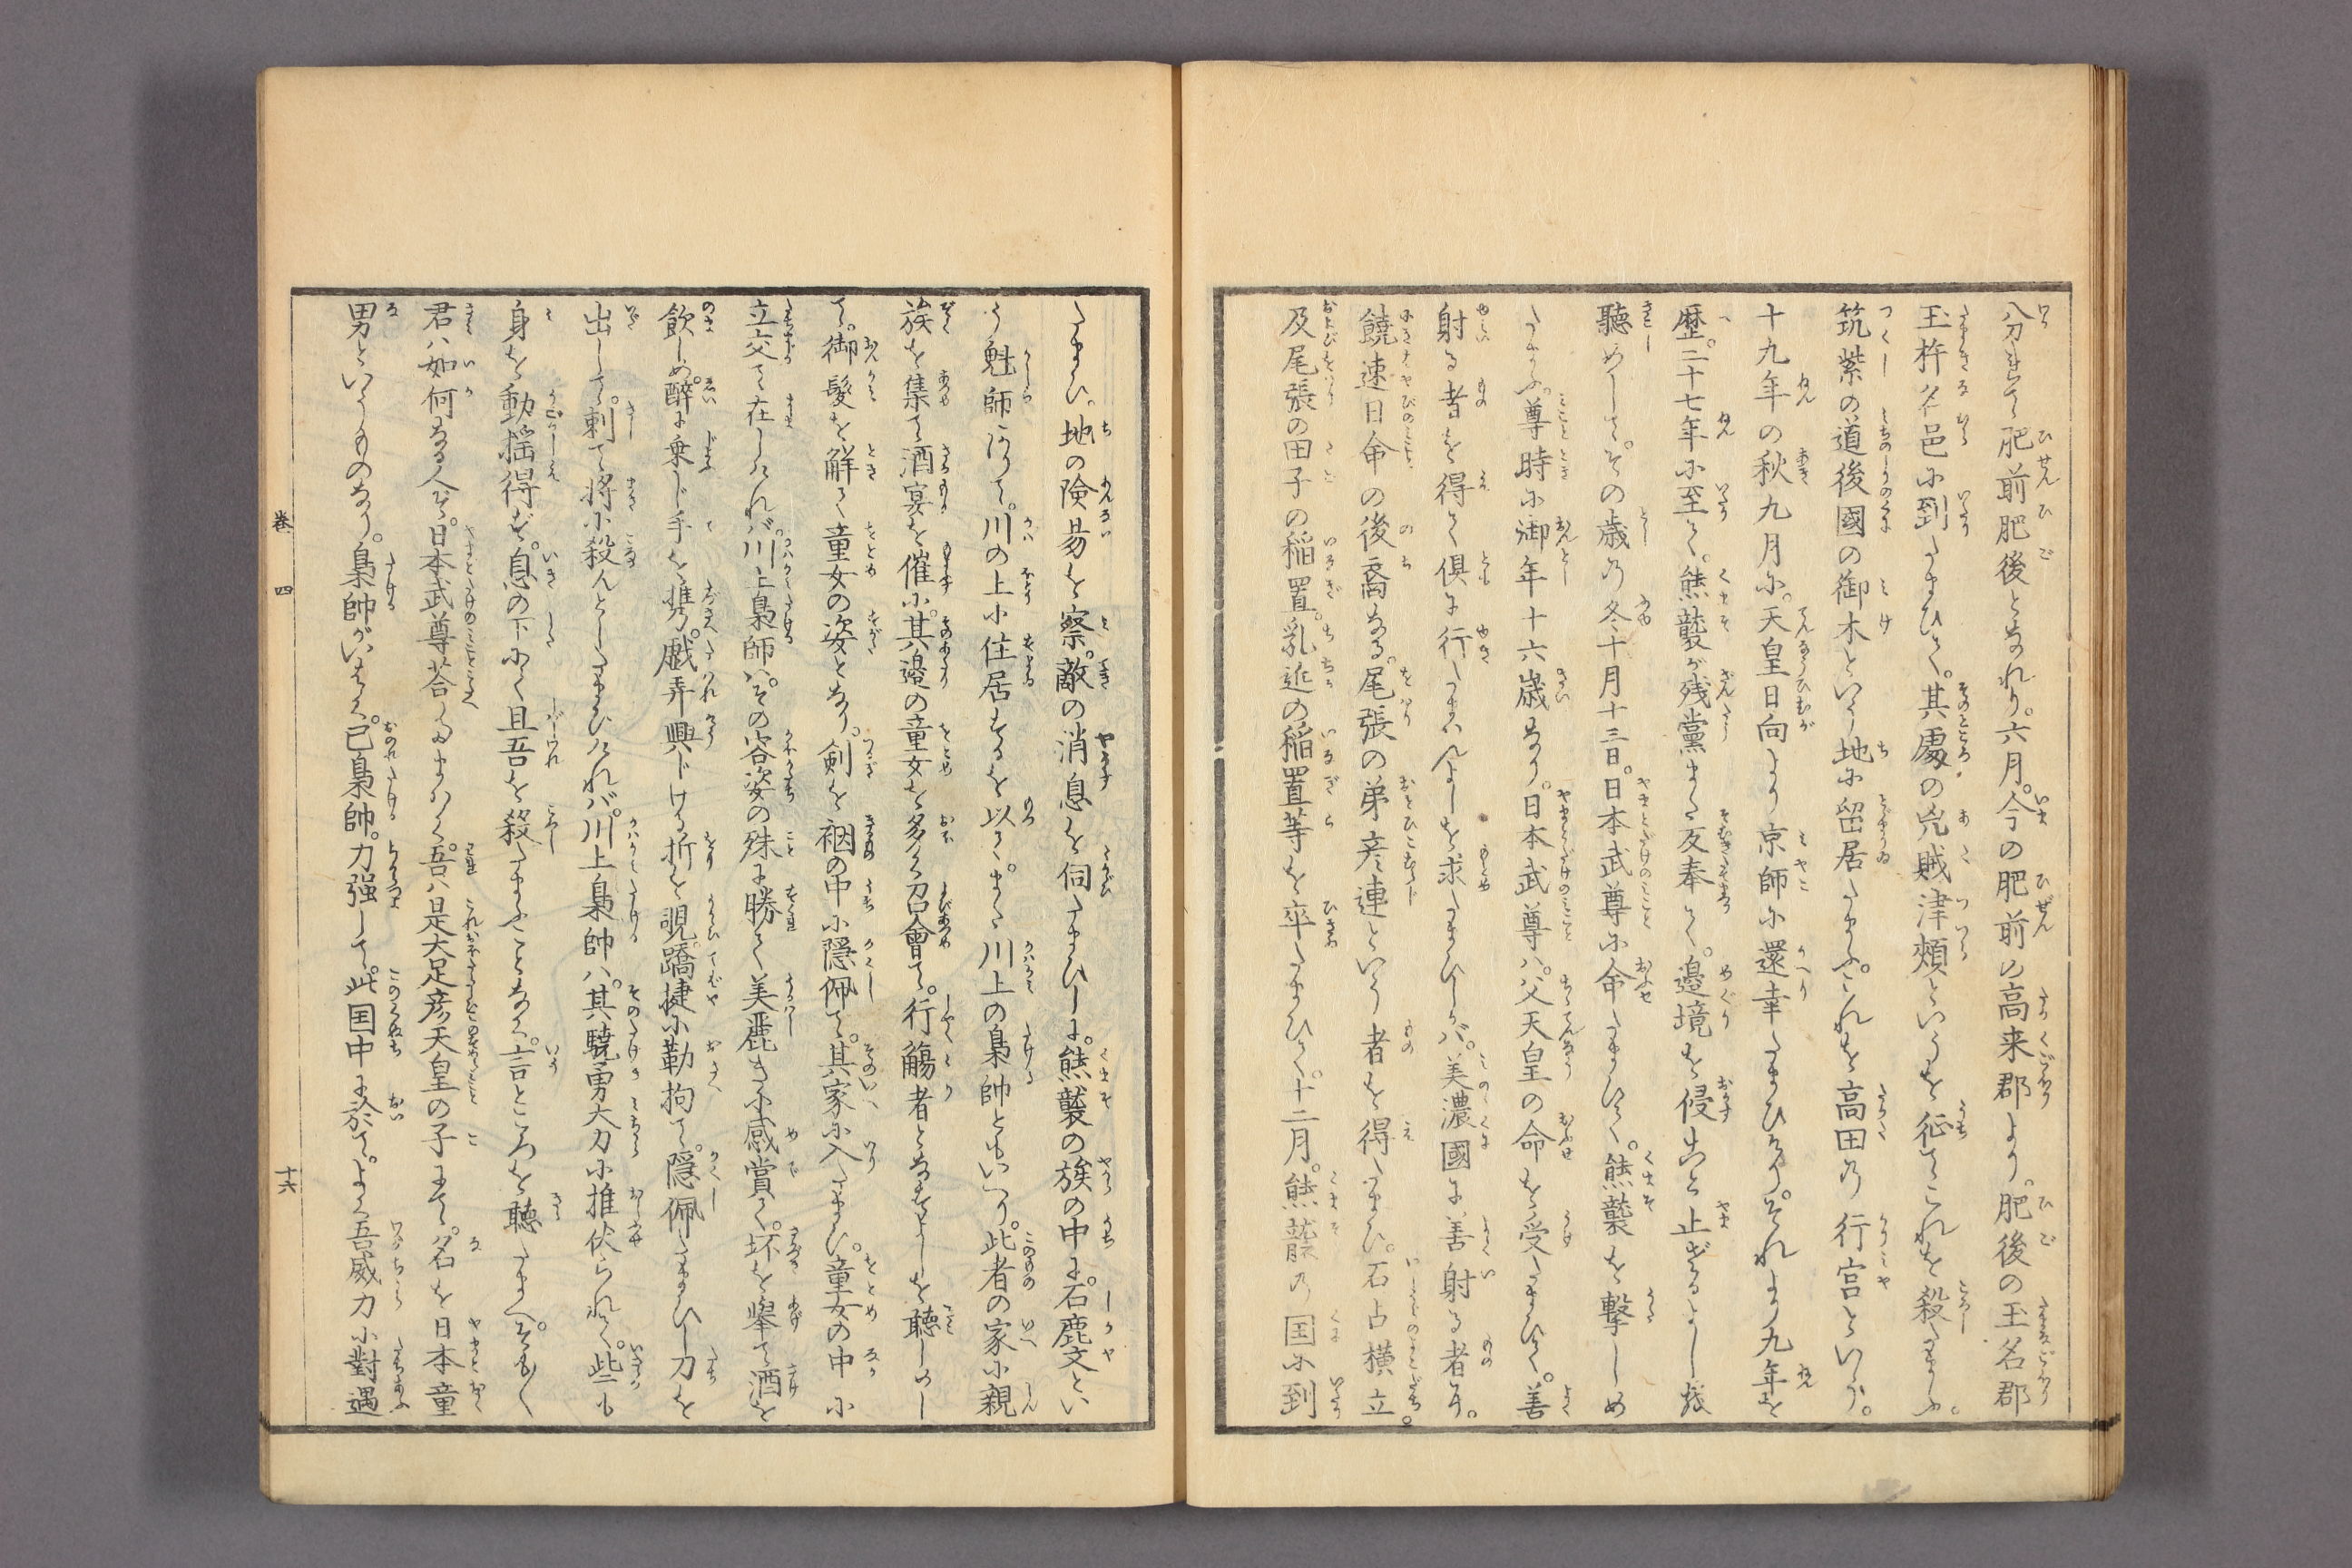 分れて肥前肥後となれり。六月。今の肥前の高来郡より。肥後の玉名郡
玉杵名邑に到たまひて。其處の兇賊津頬といふを征てこれを殺たまふ。
筑紫の道後國の御木といふ地に留居たまふ。これを高田の行宮といふ。
十九年の秋九月に。天皇日向より京師に還幸たまひけり。それより九年を
歴。二十七年に至て。熊襲が残黨また反奉て。邊境を侵こと止ざるよし
聽めして。その歳の冬十月十三日。日本武尊に命たまひて。熊襲を撃しめ
たまふ。尊時に御年十六歳なり。日本武尊ハ父天皇の命を受たまひて。善
射る者を得て倶に行たまはんよしを求たまひしかバ。美濃國に善射る者有。
饒速日命の後裔なる。尾張の弟彦連といふ者を得たまひ。石占横立。
及尾張の田子の稲置。乳近の稲置等を卒たまひて。十二月。熊襲の国に到
たまひ。地の険易を察。敵の消息を伺たまひしに。熊襲の族の中に。石鹿文とい
う魁師ありて。川の上に住居するを以て。また川上の梟帥ともいへり。此者の家に親
族を集て酒宴を催に。其邉の童女を多く召會て。行觴者となすよしを聽しめし
て。御髪を解て童女の姿となり。剣を裀の中に隠佩て。其家に入たまひ。童女の中に
立交て在しけれバ。川上梟師ハ。その容姿の殊に勝て美麗きに感賞て。坏を舉て酒を
飲しめ。醉に乗じ手を携。戯弄興じける折を覗。蹻揵に勒拘て。隠佩たまひし刀を
出して。刺て将に殺んとしたまひけれバ。川上梟帥ハ。其驍勇大力に推伏られて。些も
身を動揺得ず。息の下にて且吾を殺たまふことなく。言ところを聽たまへ。そも〱
君ハ如何なる人ぞ。日本武尊荅たまハく。吾ハ是大足彦天皇の子にて。名を日本童
男といふものなり。梟帥がいはく。己梟帥。力強して。此国中に於て。よく吾威力に對遇
巻四
十六